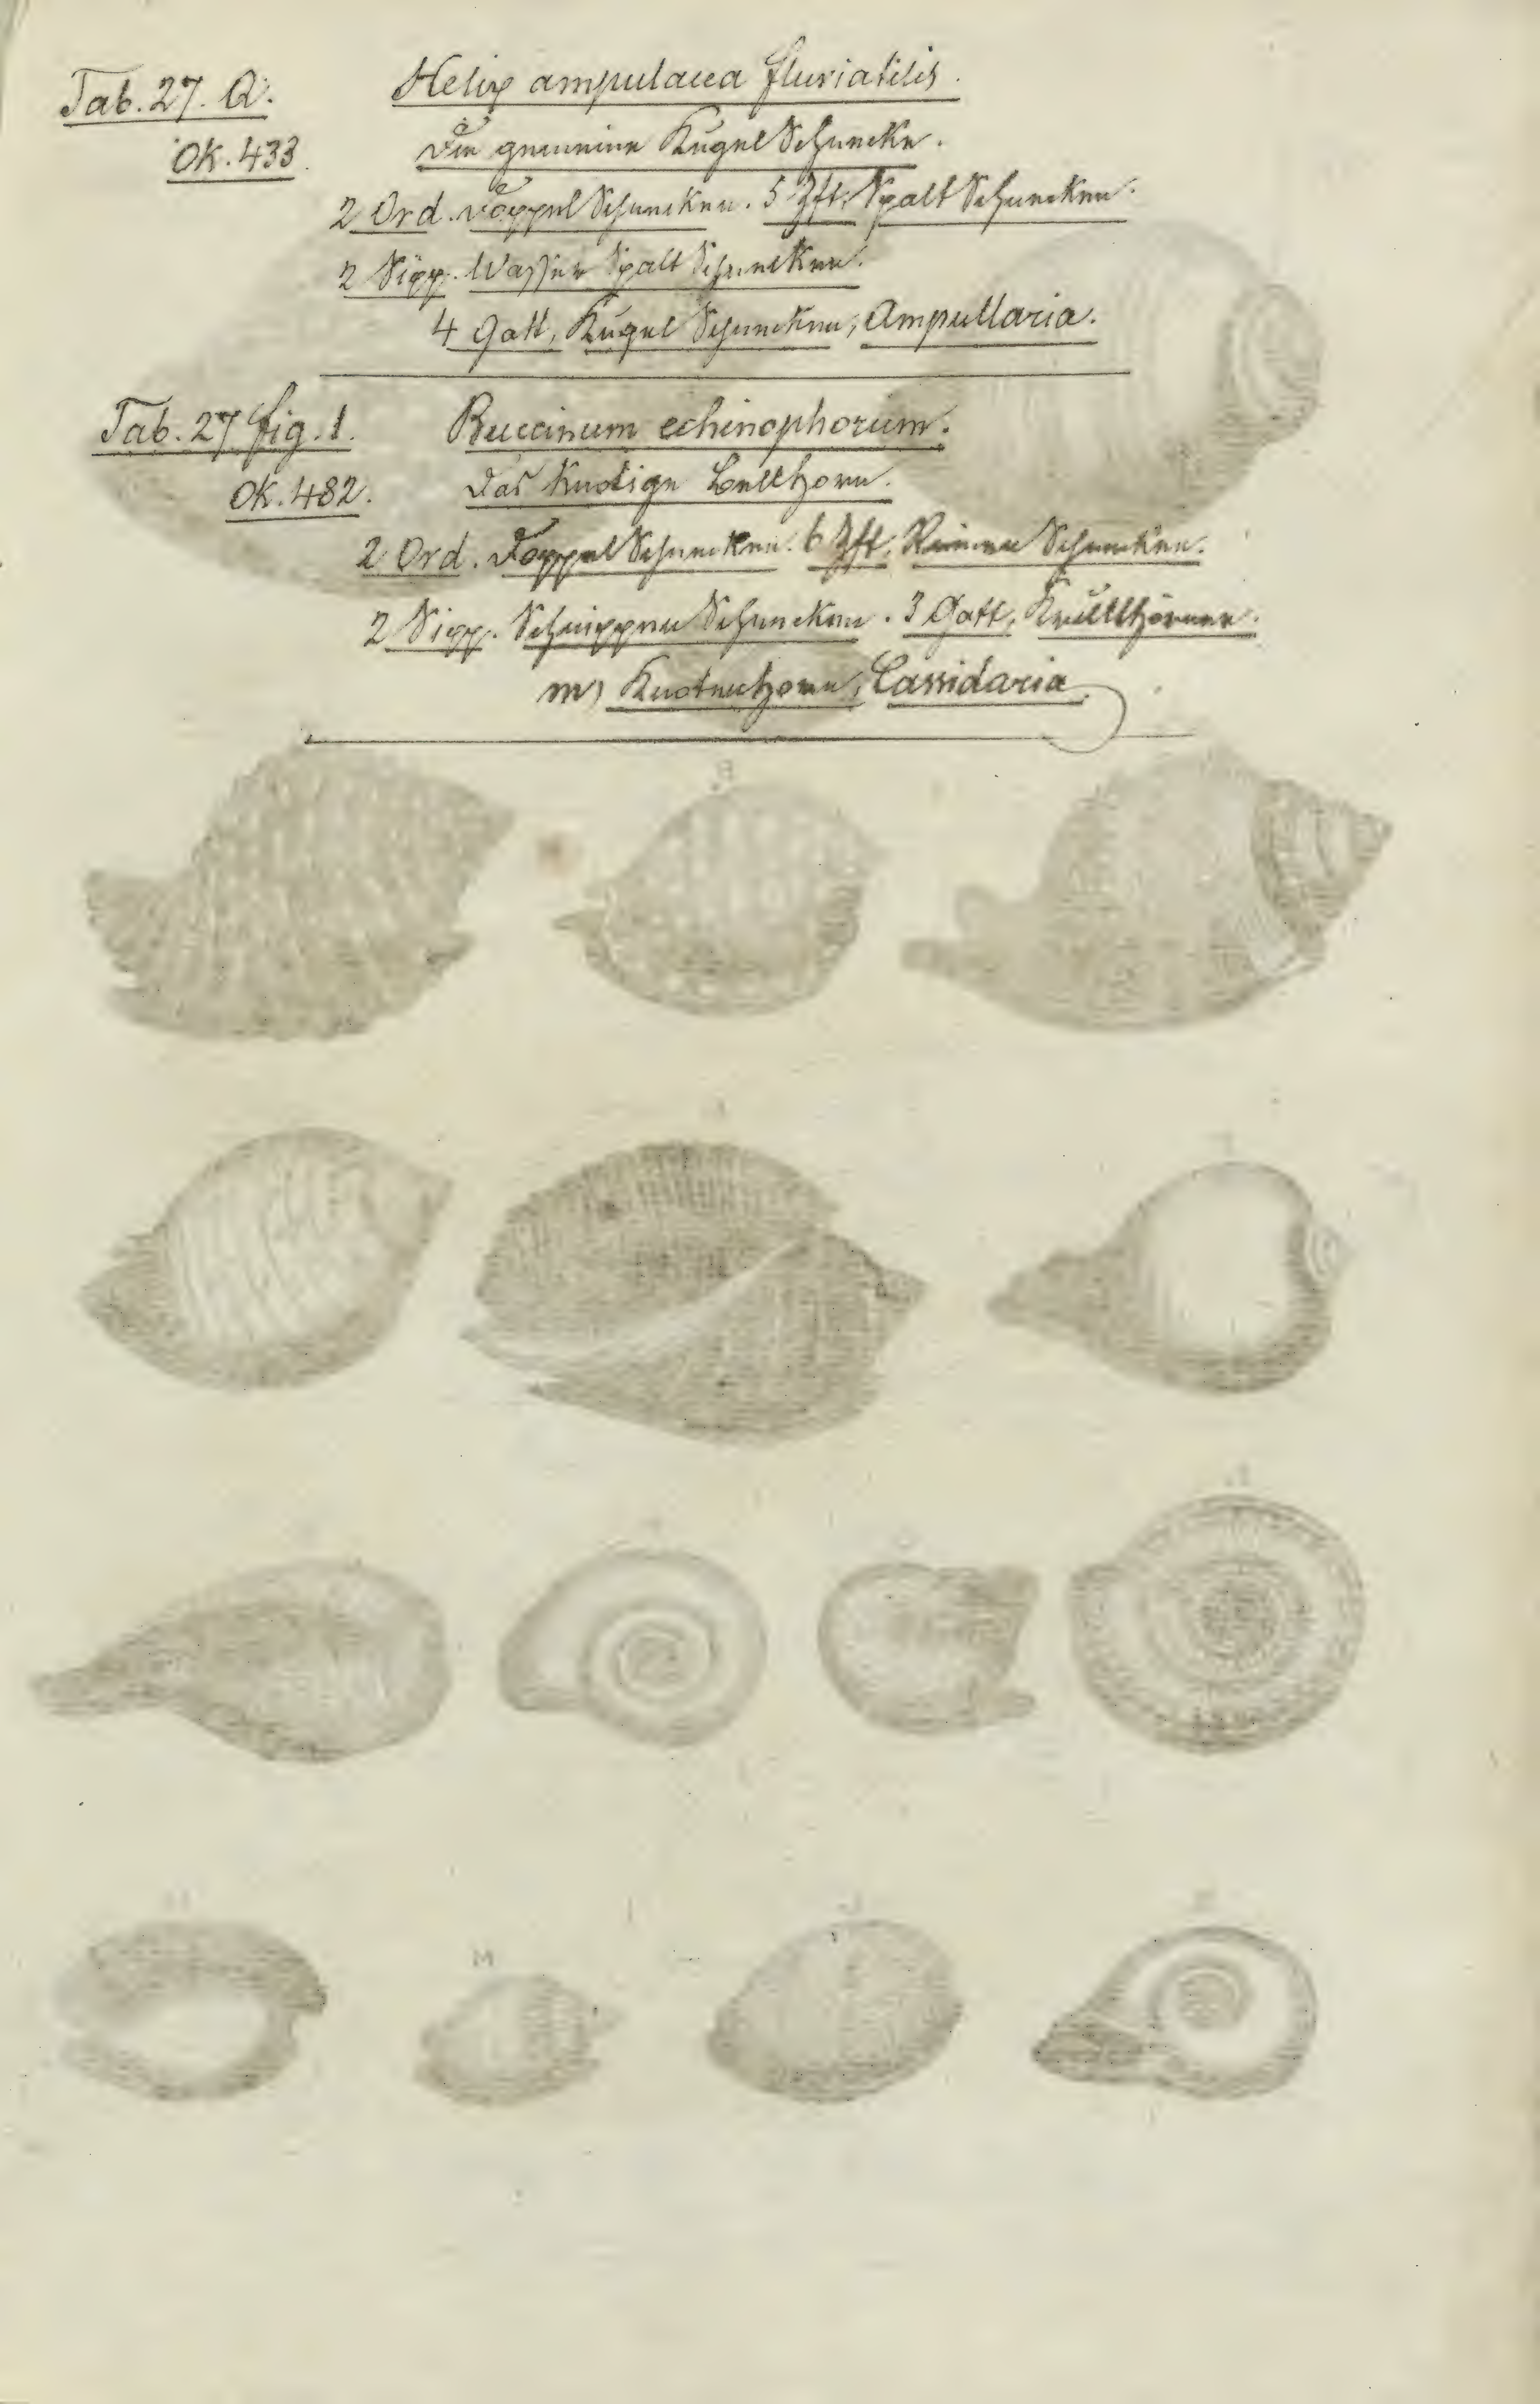 Tab. 27. A. Helix ampulacea fluviatilis.
OK. 433. Die gemeine Kugel Schnecke.
2 Ord. Doppel Schnecken. 5 Zft. Spalt Schnecken.
2 Sipp. Wasser Spalt Schnecken.
4 Gatt. Kugel Schnecken, Ampullaria.
Tab. 27 fig. 1. Buccinum echinophorum.
OK. 482. Das knotige Bellhorn.
2 Ord. Doppel Schnecken. 6 Zft. Rinnen Schnecken.
2 Sipp. Schnippen Schnecken. 3 Gatt.
m) Knotenhorn, Cassidaria.
B
M